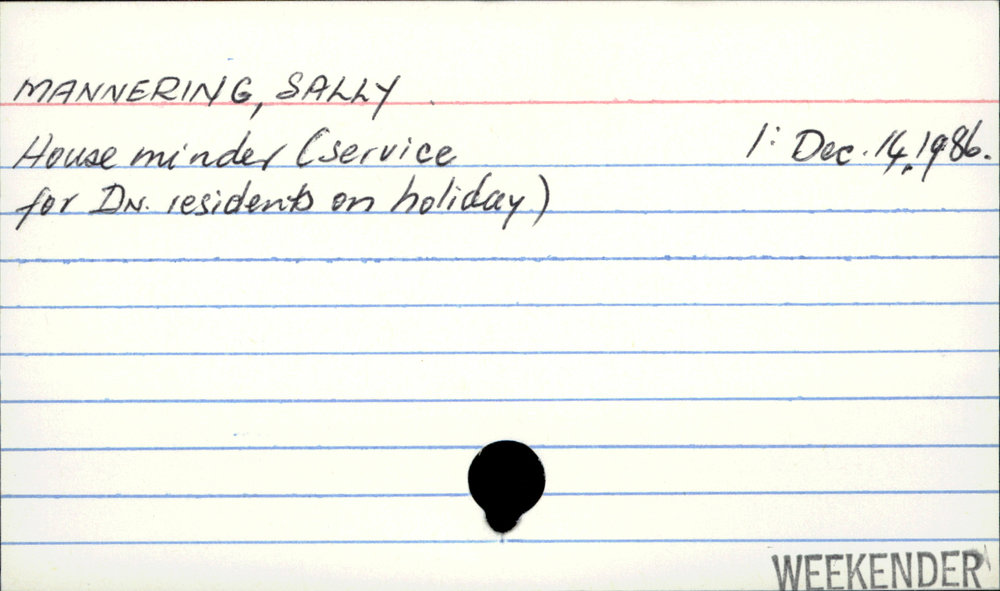 MANNERING, SALLY.
House minder (service 1: Dec. 14, 1986.
for DN. residents on holiday)
WEEKENDER